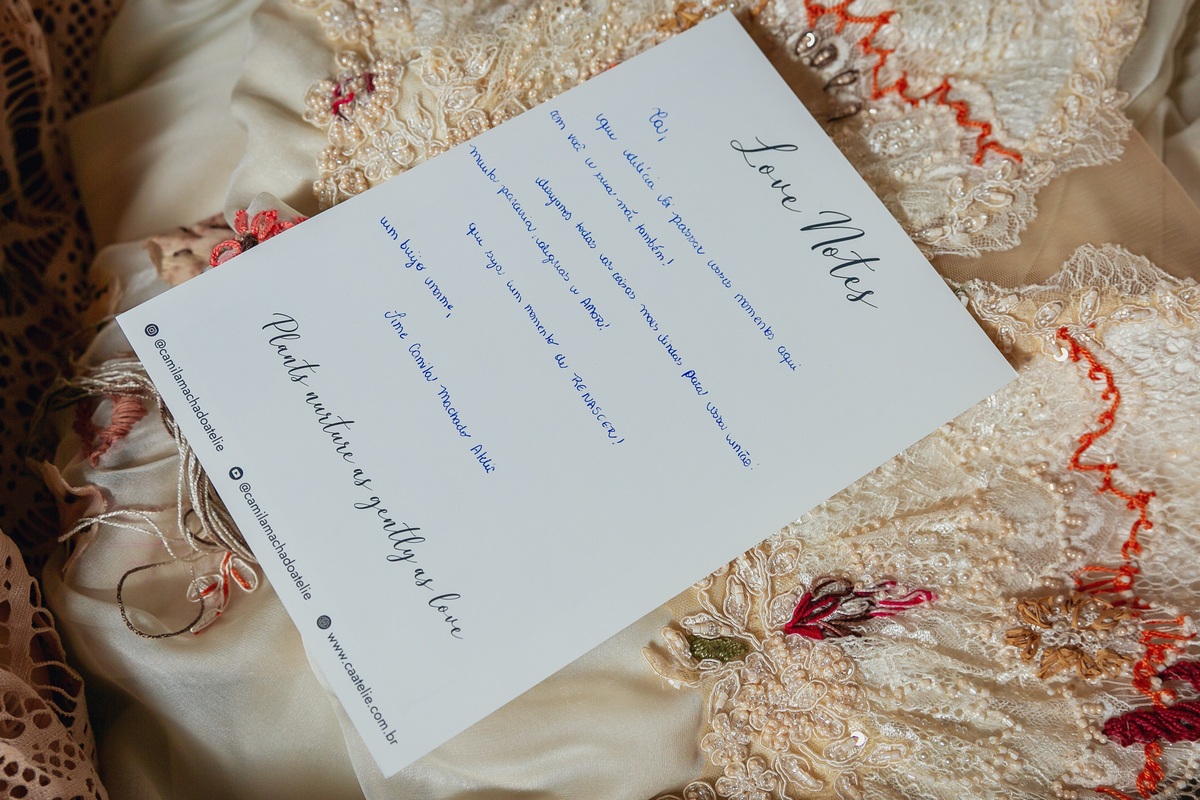 Love Notes
que delícia foi passar esses momentos aqui
com você e sua mãe também!
desejamos todas as coisas mais lindas para essa união:
muita parceria, alegrias e AMOR!
que seja um momento de RENASCER!
um beijo enorme,
Time Camila Machado Ateliê
Plants nurture as gently as love
@camilamachadoatelie @camilamachadoatelie www.caatelie.com.br